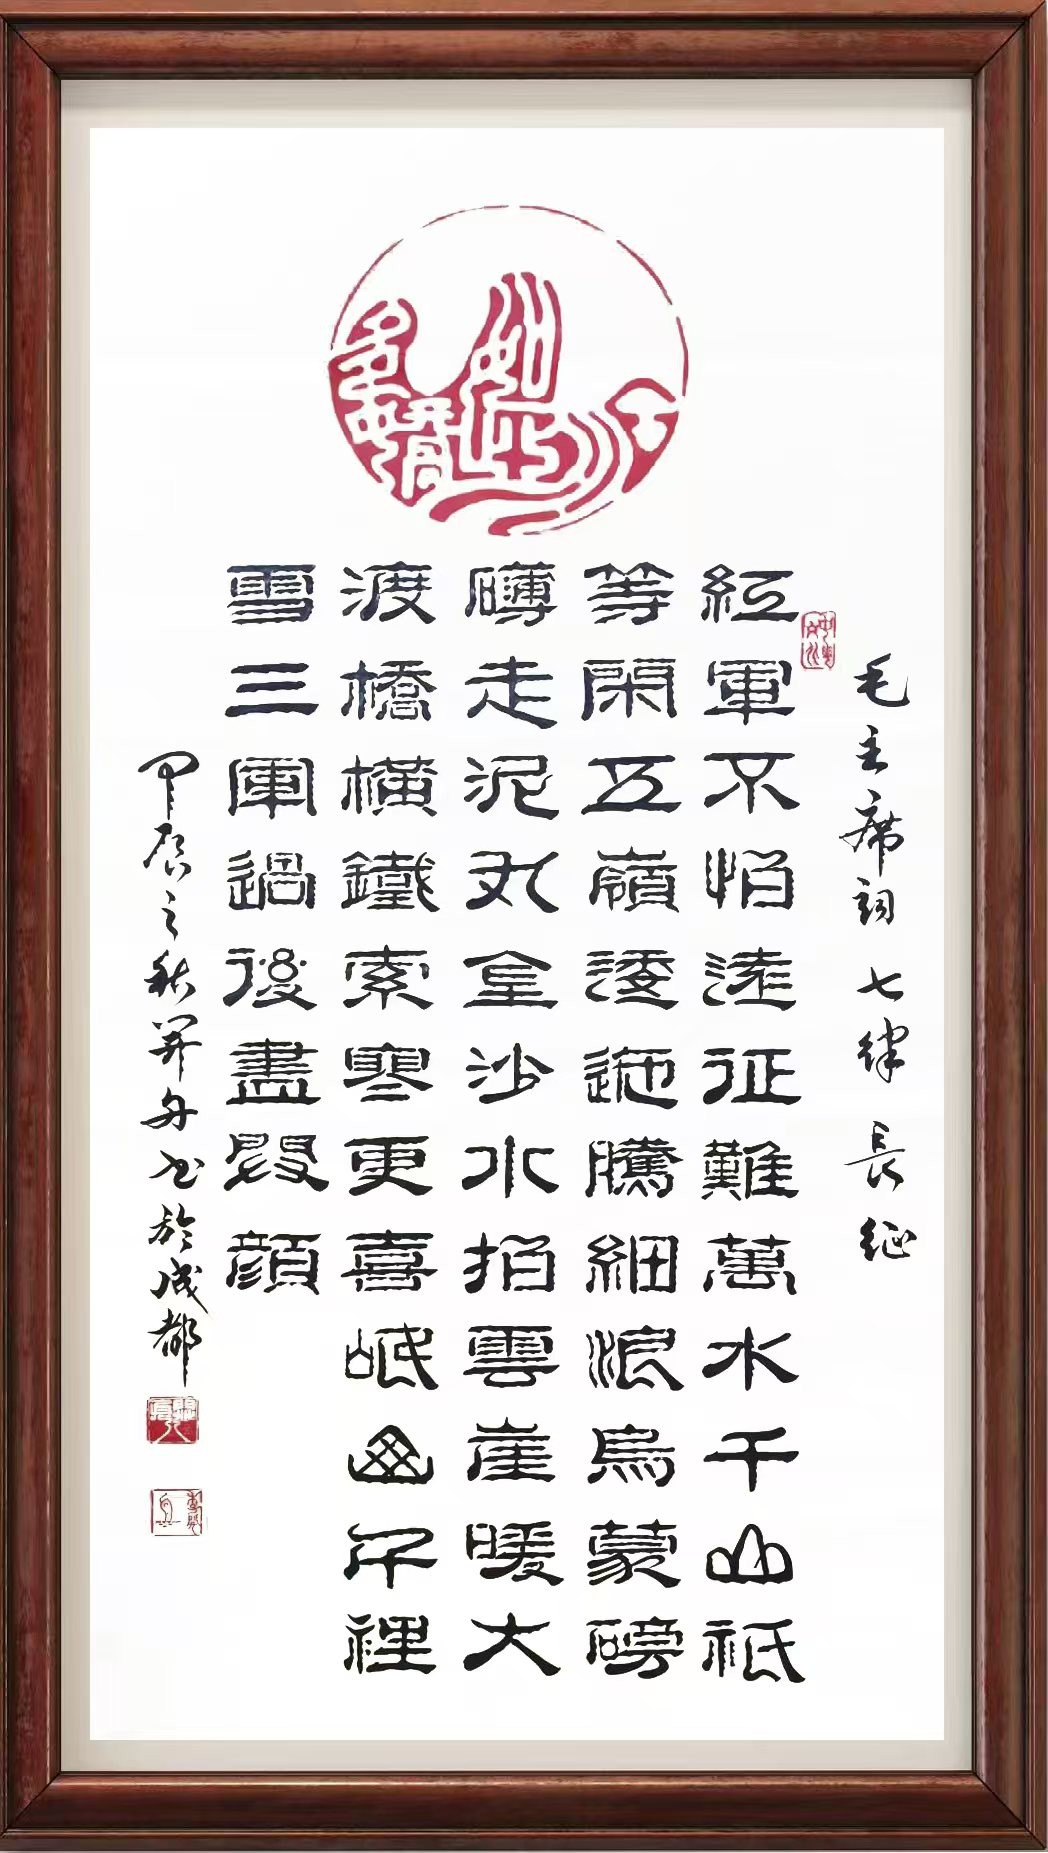 毛主席詞 七律 長征
紅軍不怕遠征難萬水千山祇
等閑五嶺逶迤騰細浪烏蒙磅
礴走泥丸金沙水拍雲崖暖大
渡橋橫鐵索寒更喜岷山千裡
雪三軍過後盡開顏
甲辰之秋 书於成都